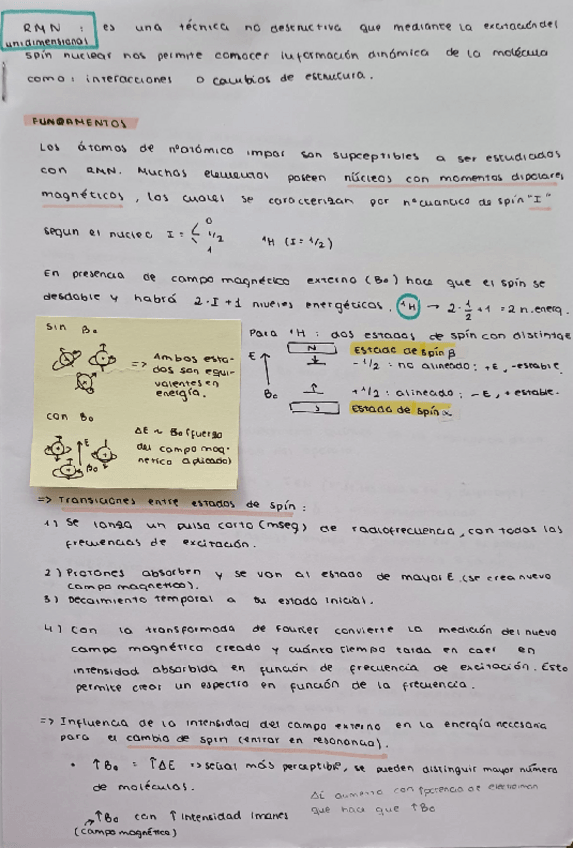 RMN : es una técnica no destructiva que mediante la excitación del
unidimensional
spin nuclear nos permite conocer información dinámica de la molécula
como: interacciones o cambios de estructura.
FUNDAMENTOS
Los átomos de nº atómico impar son supceptibles a ser estudiados
con RMN. Muchos elementos poseen núcleos con momentos dipolares
magnéticos, los cuales se caracterizan por nº cuantico de spin "I"
segun el nucleo I = < 0 1/2 1 ¹H (I = 1/2)
En presencia de campo magnético externo (B₀) hace que el spin se
desdoble y habrá 2·I+1 niveles energéticos. ¹H → 2·1/2+1 = 2 n.energ.
sin B₀
=> Ambos esta-
dos son equi-
valentes en
energía.
con B₀
E
B₀
ΔE ~ B₀ (fuerza
del campo mag-
nético aplicado)
Para ¹H : dos estados de spin con distinta E
N
Estado de spin β
E
-1/2 : no alineado : +E, -estable.
B₀
+1/2 : alineado : -E, + estable.
S
Estado de spin α
=> Transiciones entre estados de spin :
1) Se lanza un pulso corto (mseg) de radiofrecuencia, con todas las
frecuencias de excitación.
2) Protones absorben y se van al estado de mayor E. (se crea nuevo
campo magnetico).
3) Decaimiento temporal a su estado inicial.
4) Con la transformada de Fourier convierte la medición del nuevo
campo magnético creado y cuánto tiempo tarda en caer en
intensidad absorbida en función de frecuencia de excitación. Esto
permite crear un espectro en función de la frecuencia.
=> Influencia de la intensidad del campo externo en la energía necesaria
para el cambio de spin (entrar en resonancia).
• ↑B₀ = ↑ΔE => señal más perceptible, se pueden distinguir mayor número
de moléculas.
aumenta con ↑potencia de
que hace que ↑B₀
↑B₀ con ↑ intensidad imanes
(campo magnético)